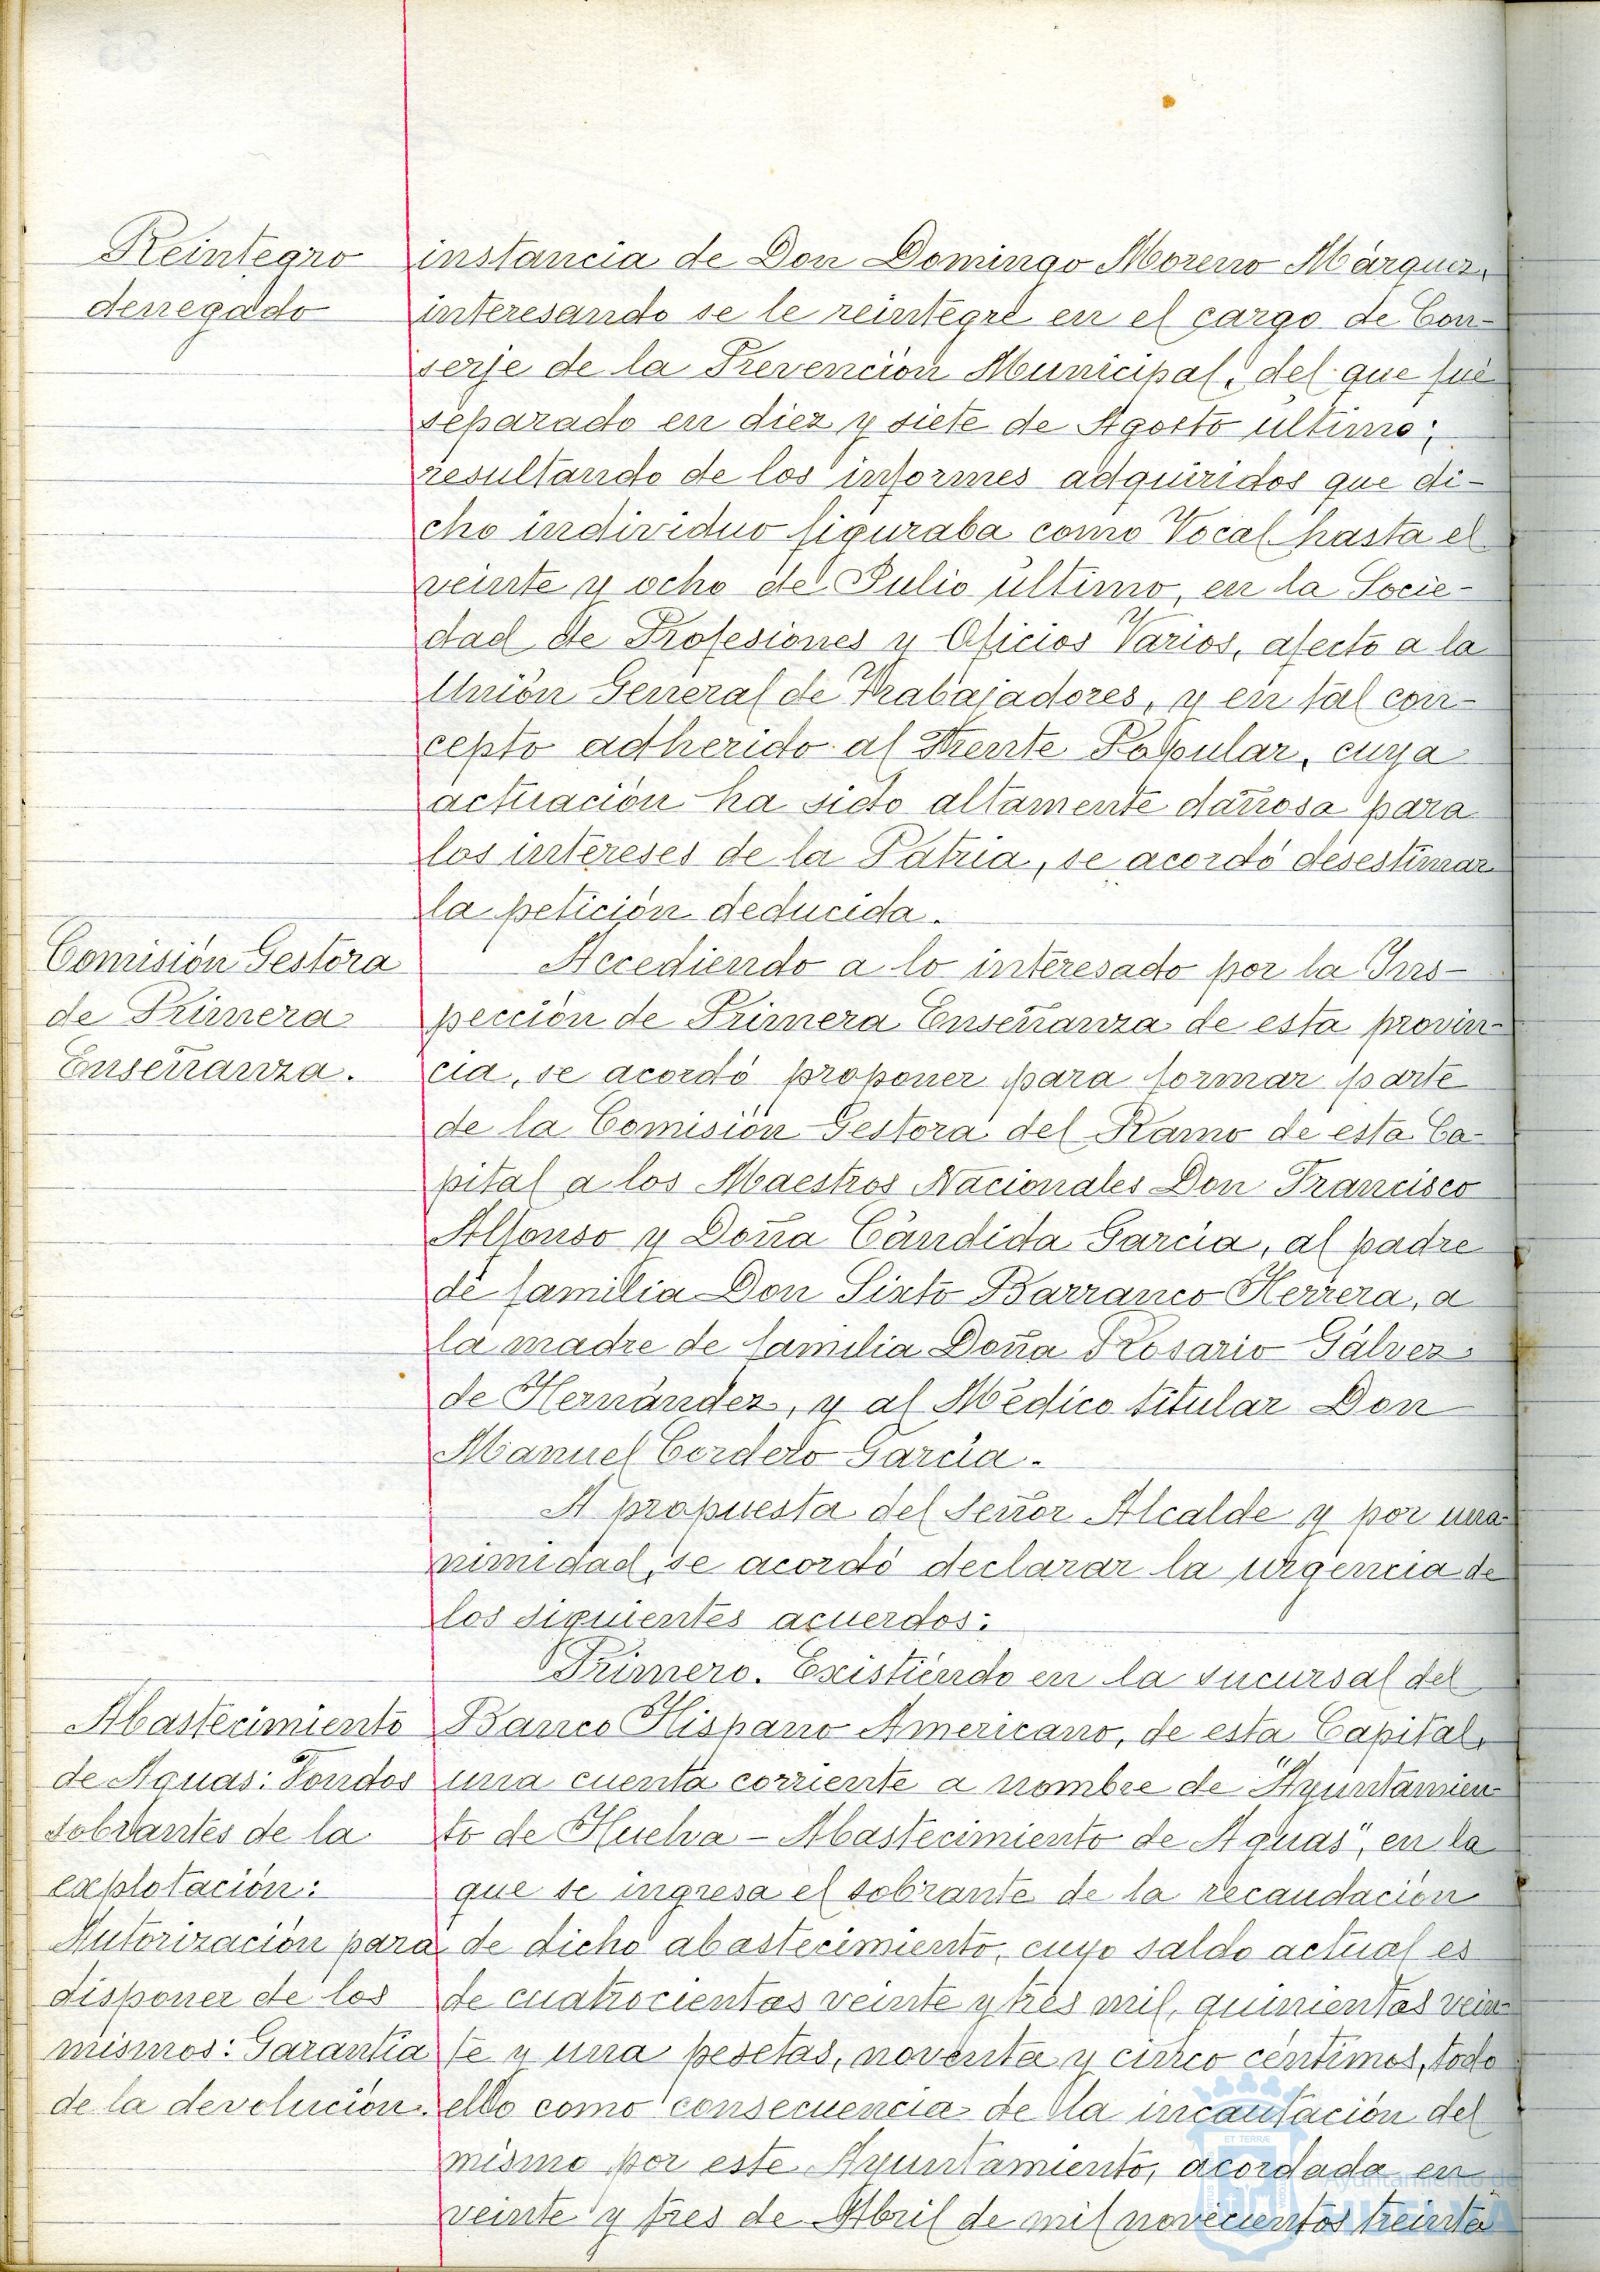 Reintegro
denegado
instancia de Don Domingo Moreno Márquez,
interesando se le reintegre en el cargo de Con-
serje de la Prevención Municipal, del que fué
separado en diez y siete de Agosto último;
resultando de los informes adquiridos que di-
cho individuo figuraba como Vocal hasta el
veinte y ocho de Julio último, en la Socie-
dad de Profesiones y Oficios Varios, afecto a la
Unión General de Trabajadores, y en tal con-
cepto adherido al Frente Popular, cuya
actuación ha sido altamente dañosa para
los intereses de la Patria, se acordó desestimar
la petición deducida.
Comisión Gestora
de Primera
Enseñanza.
Accediendo a lo interesado por la Ins-
pección de Primera Enseñanza de esta provin-
cia, se acordó proponer para formar parte
de la Comisión Gestora del Ramo de esta Ca-
pital a los Maestros Nacionales Don Francisco
Alfonso y Doña Cándida García, al padre
de familia Don Sixto Barranco Herrera, a
la madre de familia Doña Rosario Gálvez
de Hernández, y al Médico titular Don
Manuel Cordero García.
A propuesta del Señor Alcalde y por una-
nimidad, se acordó declarar la urgencia de
los siguientes acuerdos:
Abastecimiento
de Aguas: Fondos
sobrantes de la
explotación:
Autorización para
disponer de los
mismos: Garantía
de la devolución.
Primero. Existiendo en la sucursal del
Banco Hispano Americano, de esta Capital,
una cuenta corriente a nombre de "Ayuntamien-
to de Huelva - Abastecimiento de Aguas", en la
que se ingresa el sobrante de la recaudación
de dicho abastecimiento, cuyo saldo actual es
de cuatrocientas veinte y tres mil, quinientas vein-
te y una pesetas, noventa y cinco céntimos, todo
ello como consecuencia de la incautación del
mismo por este Ayuntamiento, acordada en
veinte y tres de Abril de mil novecientos treinta
ET TERRÆ
Ayuntamiento de
HUELVA